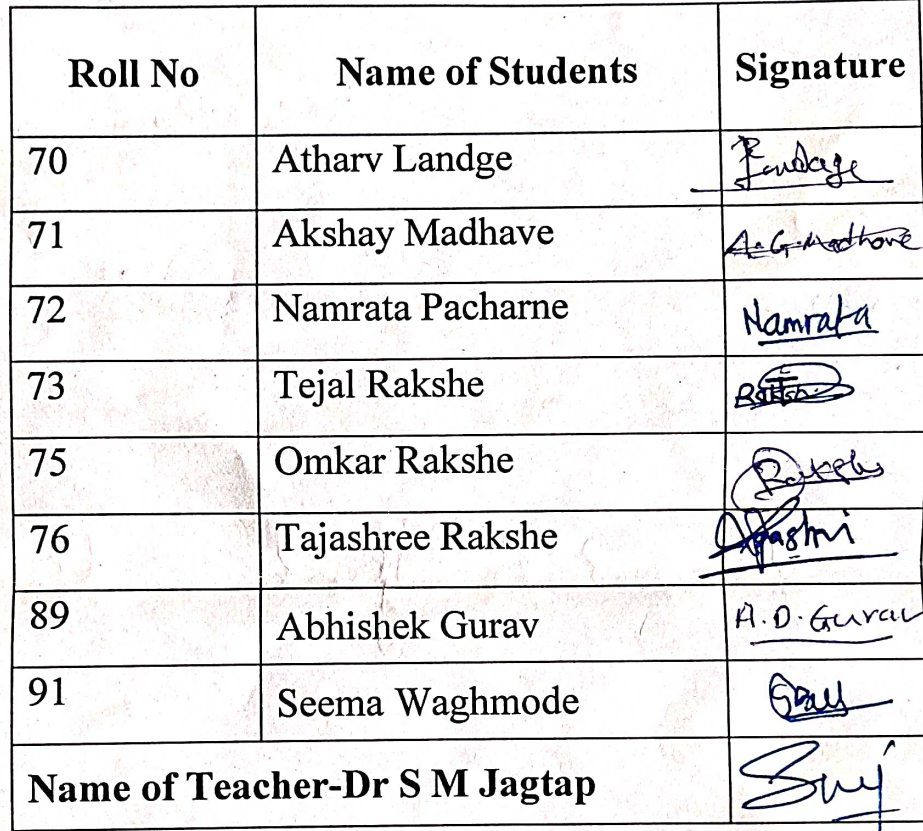 Roll No Name of Students Signature
70 Atharv Landge
71 Akshay Madhave A. G. Madhave
72 Namrata Pacharne Namrata
73 Tejal Rakshe
75 Omkar Rakshe Rakshe
76 Tajashree Rakshe
89 Abhishek Gurav A.D. Gurav
91 Seema Waghmode
Name of Teacher-Dr S M Jagtap